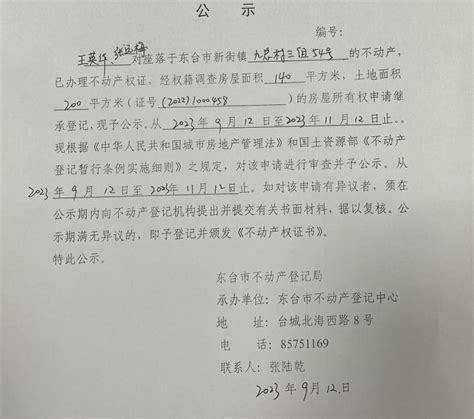 公 示
编号：
王英华、张运梅 对座落于东台市新街镇 九总村三组54号 的不动产，
已办理不动产权证，经权籍调查房屋面积 140 平方米，土地面积
200 平方米（证号 (2022)1000458 ）的房屋所有权申请继
承登记，现予公示。从 2023 年 9 月 12 日至2023年 11 月 12 日止。
现根据《中华人民共和国城市房地产管理法》和国土资源部《不动产
登记暂行条例实施细则》之规定，对该申请进行审查并予公示。从
2023 年 9 月 12 日至 2023年 11 月 12日止。如对该申请有异议者，须在
公示期内向不动产登记机构提出并提交有关书面材料，据以复核。公
示期满无异议的，即予登记并颁发《不动产权证书》。
特此公示。
东台市不动产登记局
承办单位：东台市不动产登记中心
地 址：台城北海西路8号
电 话：85751169
联系人：张陆乾
2023 年 9月 12.日